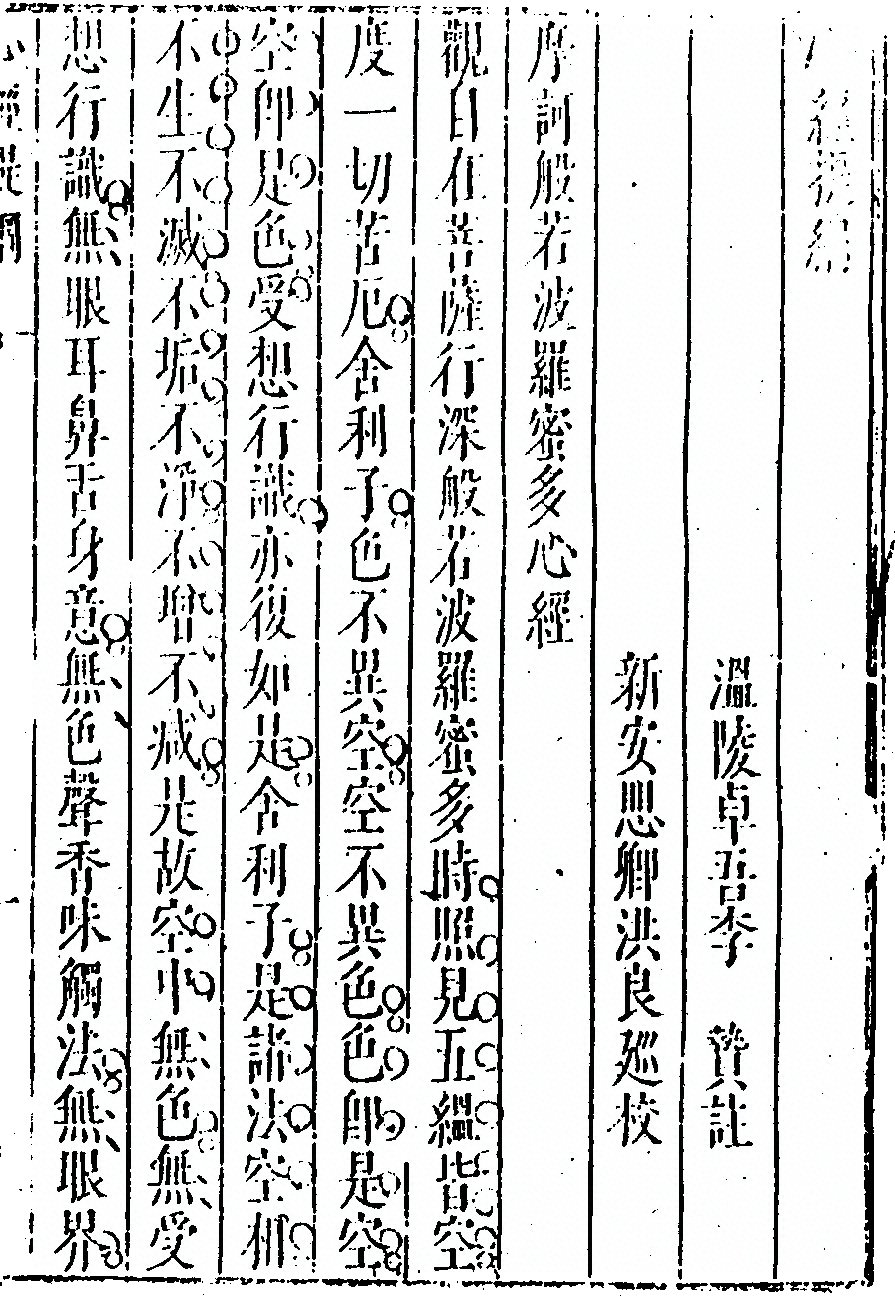 心經提綱
溫陵卓吾李 贄註
新安思卿洪良廵校
摩訶般若波羅蜜多心經
觀自在菩薩行深般若波羅蜜多時照見五縕皆空
度一切苦厄舍利子色不異空空不異色色即是空
空即是色受想行識亦復如是舍利子是諸法空相
不生不滅不垢不淨不增不减是故空中無色無受
想行識無眼耳鼻舌身意無色聲香味觸法無眼界